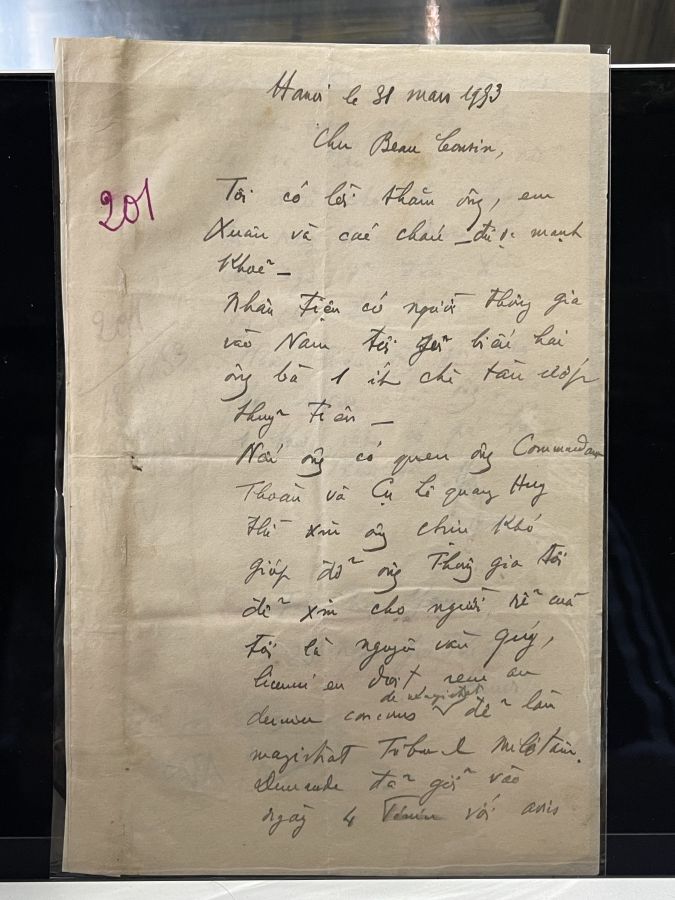 Hanoi le 31 mars 1953
Cher Beau Cousin,
201
Tôi có lời thăm ông, em
Xuân và các cháu _ được mạnh
Khoẻ _
Nhân tiện có người thông gia
vào Nam tôi gửi biếu hai
ông bà 1 ít chè tàu ướp
thuỷ tiên _
Nếu ông có quen ông Commandant
Thoàn và Cụ Lê quang Huy
thì xin ông chịu khó
giúp đỡ ông Thông gia tôi
để xin cho người rể của
tôi là nguyễn văn Quý,
licencié en droit reçu au
de magistrat
dernier concours để làm
magistrat Tribunal Militaire.
Demande đã gửi vào
ngày 4 với avis